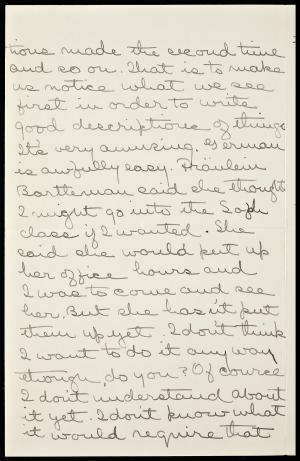 tions made the second time
and so on. That is to make
us notice what we see
first in order to write
good descriptions of things
It's very amusing. German
is awfully easy. Fräulein
Bartteman said she thought
I might go into the Soph
class if I wanted. She
said she would put up
her office hours and
I was to come and see
her. But she hasn't put
them up yet. I don't think
I want to do it any way
though, do you? Of course
I don't understand about
it yet. I don't know what
it would require that